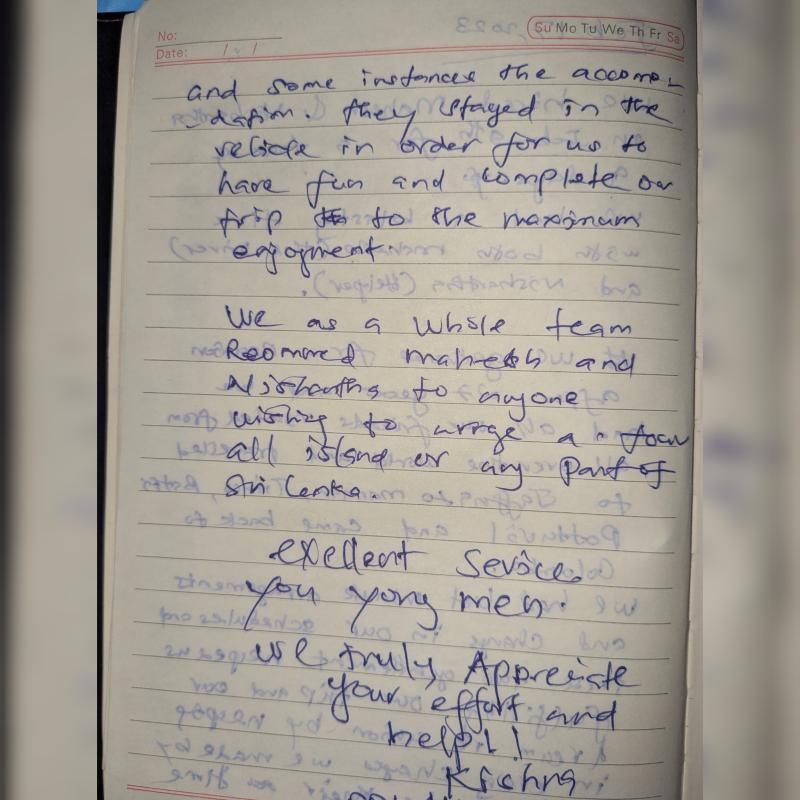 No:
Su Mo Tu We Th Fr Sa
Date: / /
and some instances the accomo-
dation. they stayed in the
vehicle in order for us to
have fun and complete our
trip to to the maximum
enjoyment.
We as a whole team
Reommed mahesh and
Nishantha to anyone
wishing to arrge a tour
all island or any part of
Sri Lanka.
exellent Sevice
you yong men.
we truly Appreciate
your effort and
help!!
Krishna